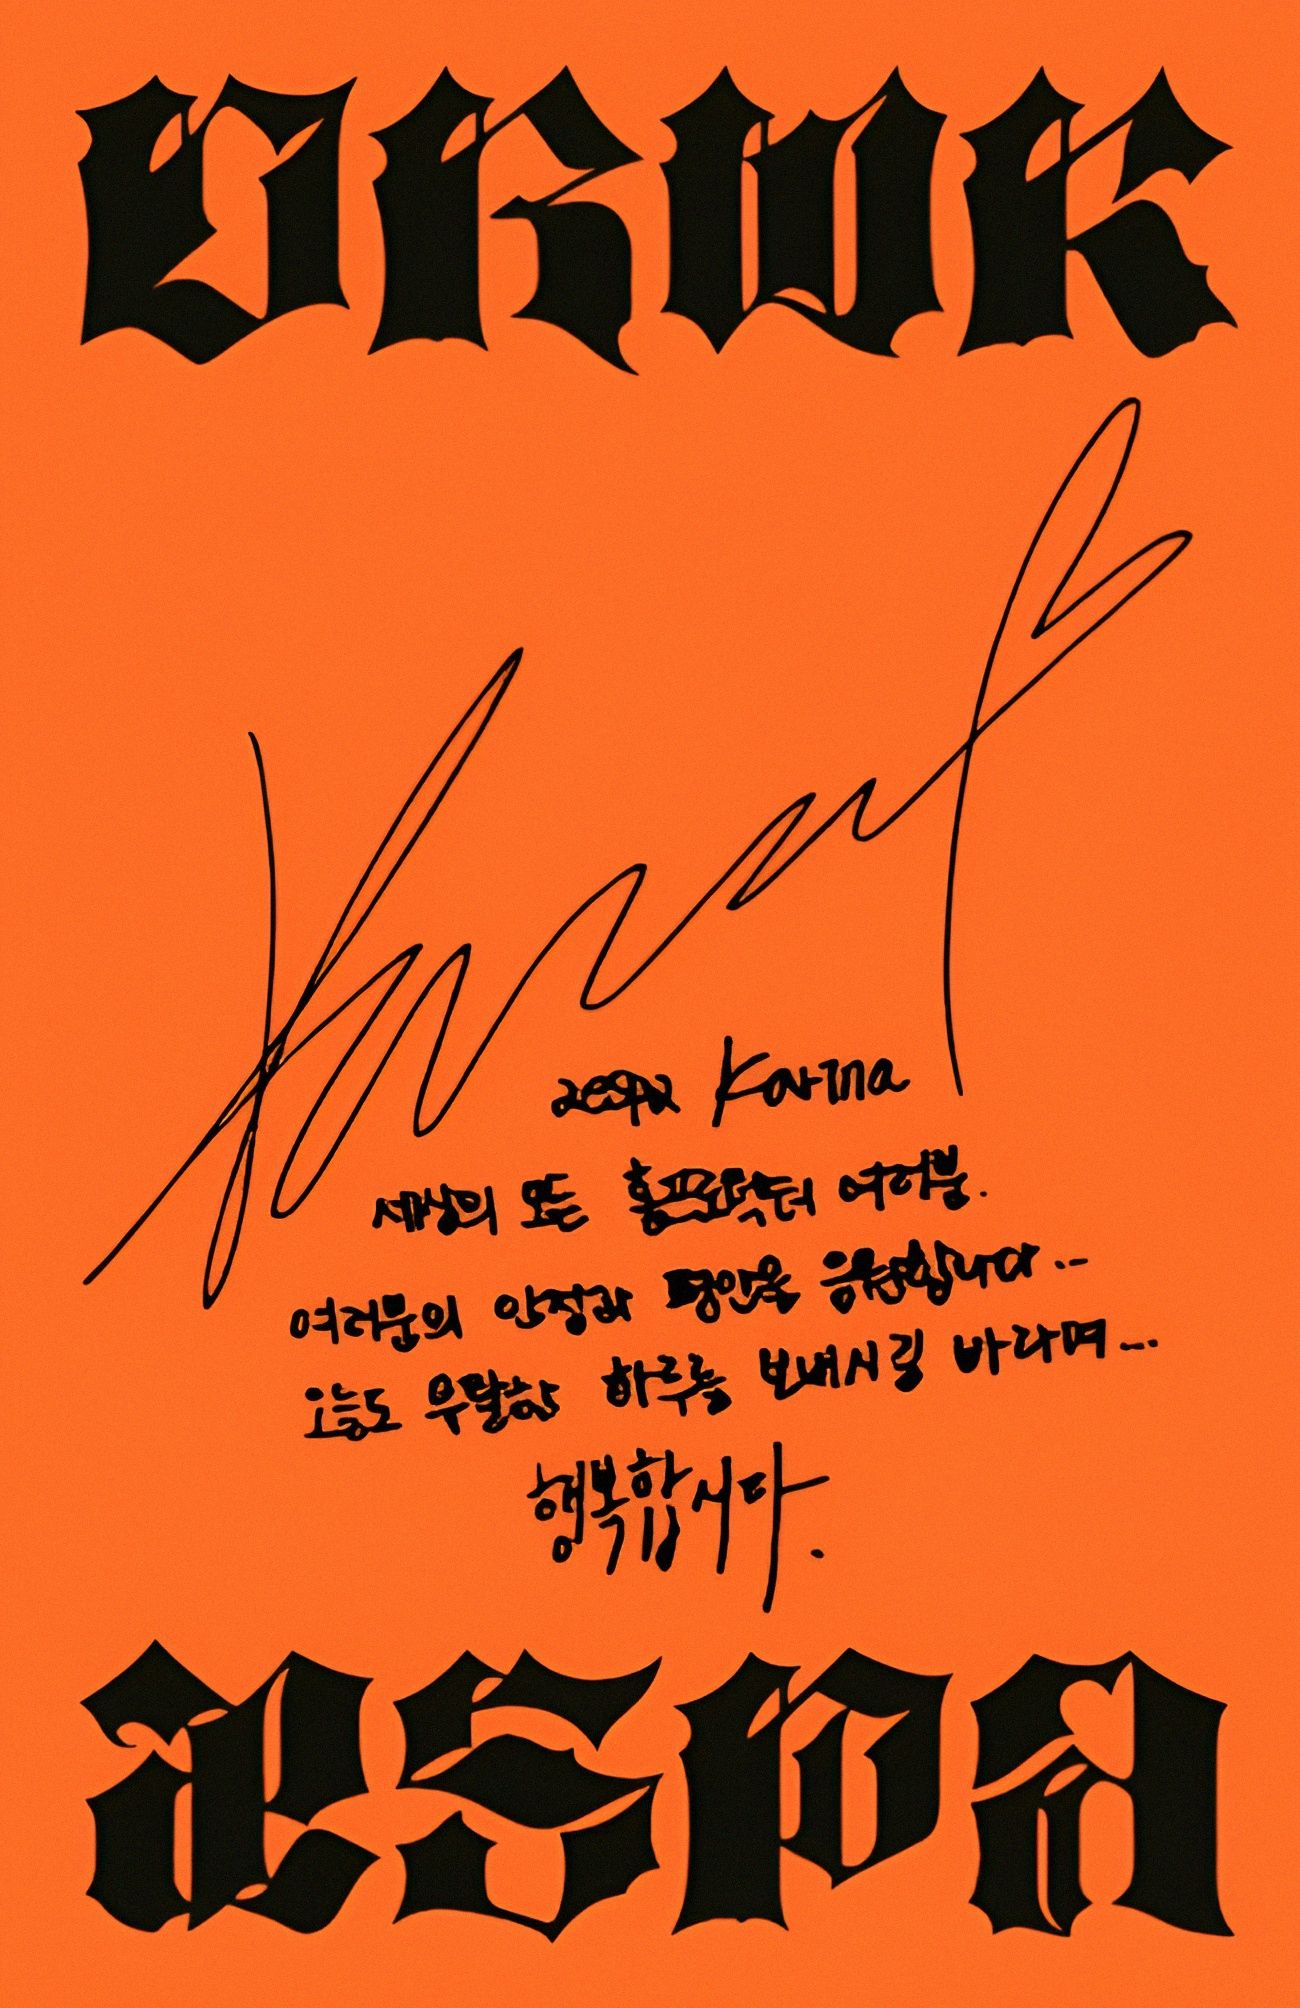 DRWK
aespa Karina
세상의 모든 홍프로덕터 여러분.
여러분의 안정과 평안을 응원합니다..
오늘도 무탈한 하루를 보내시길 바라며...
행복합시다.
aespa